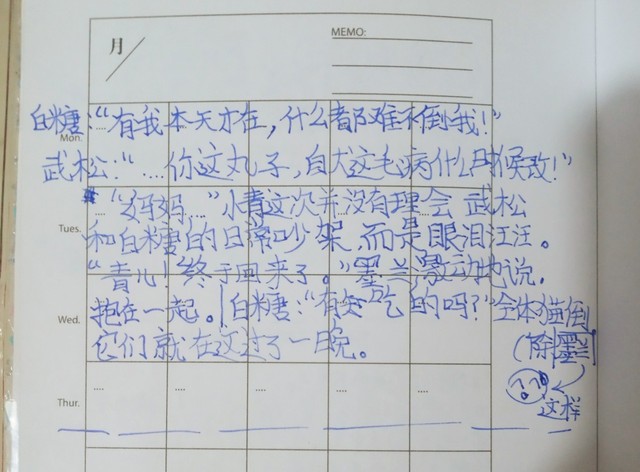 月
MEMO:
白糖:“有我本天才在,什么都难不倒我!”
Mon.
武松:“....你这丸子,自大这毛病什么时候改!”
“妈妈...”小青这次并没有理会 武松
Tues.
和白糖的日常吵架,而是眼泪汪汪。
“青儿!终于回来了。”墨兰激动地说.
Wed.
抱在一起。|白糖:“有安吃的吗?”全体猫倒
(除墨兰
它们就在这过了一晚。
这样
Thur.